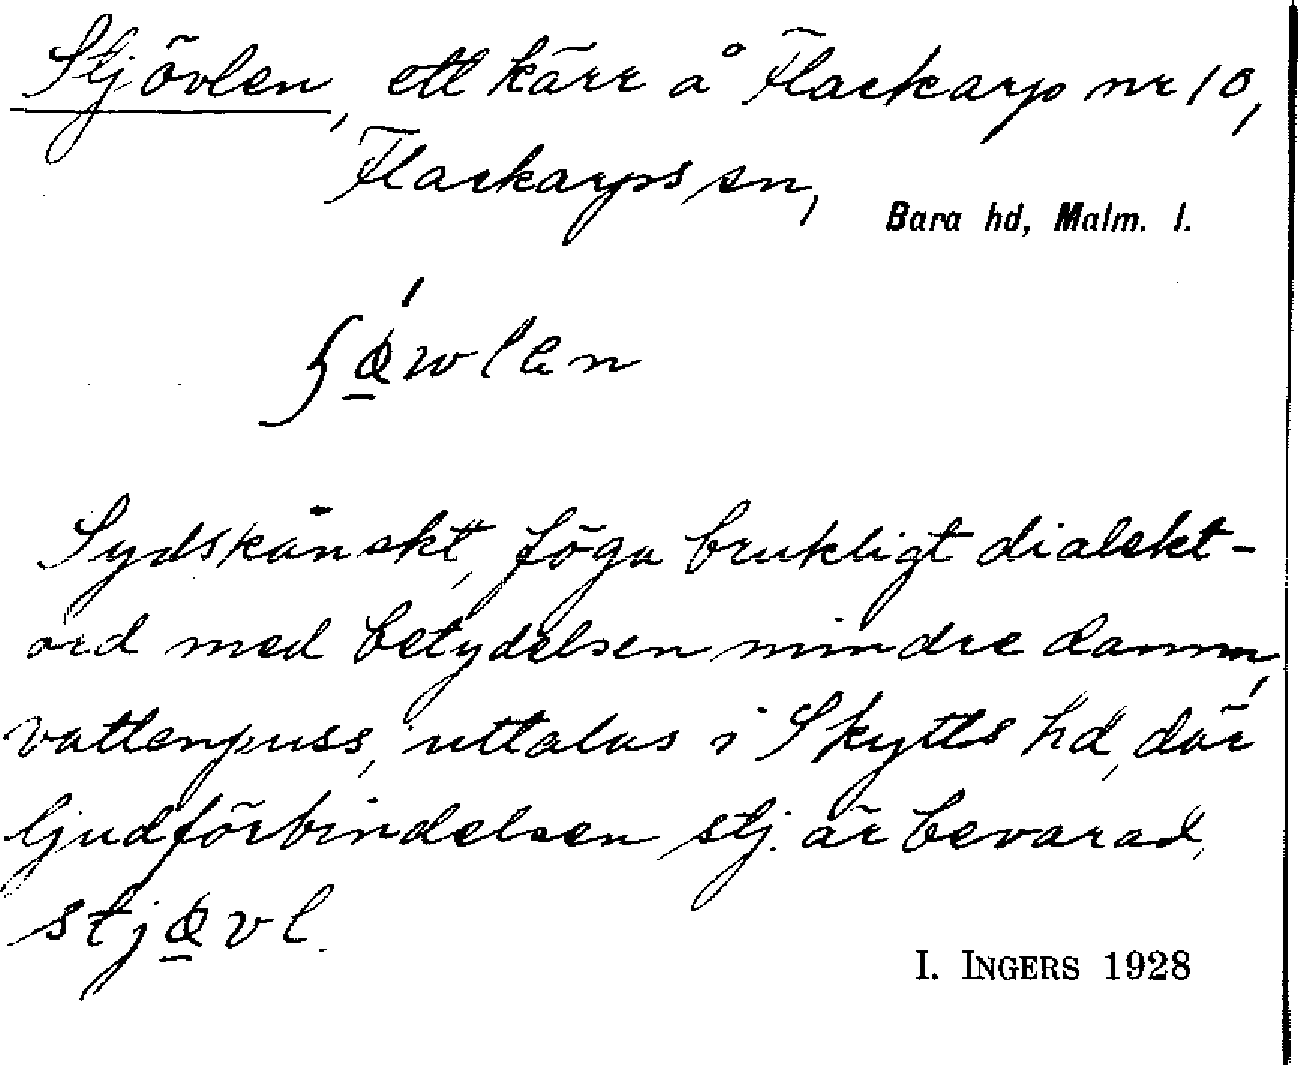 Stjövlen, ett kärr å Flackarp nr 10,
Flackarps sn,
Bara hd, Malm. l.
Sydskånskt, föga brukligt dialekt-
ord med betydelsen mindre damm,
vattenpuss, uttalas i Skytts hd, där
ljudförbindelsen stj. är bevarad,
I. INGERS 1928